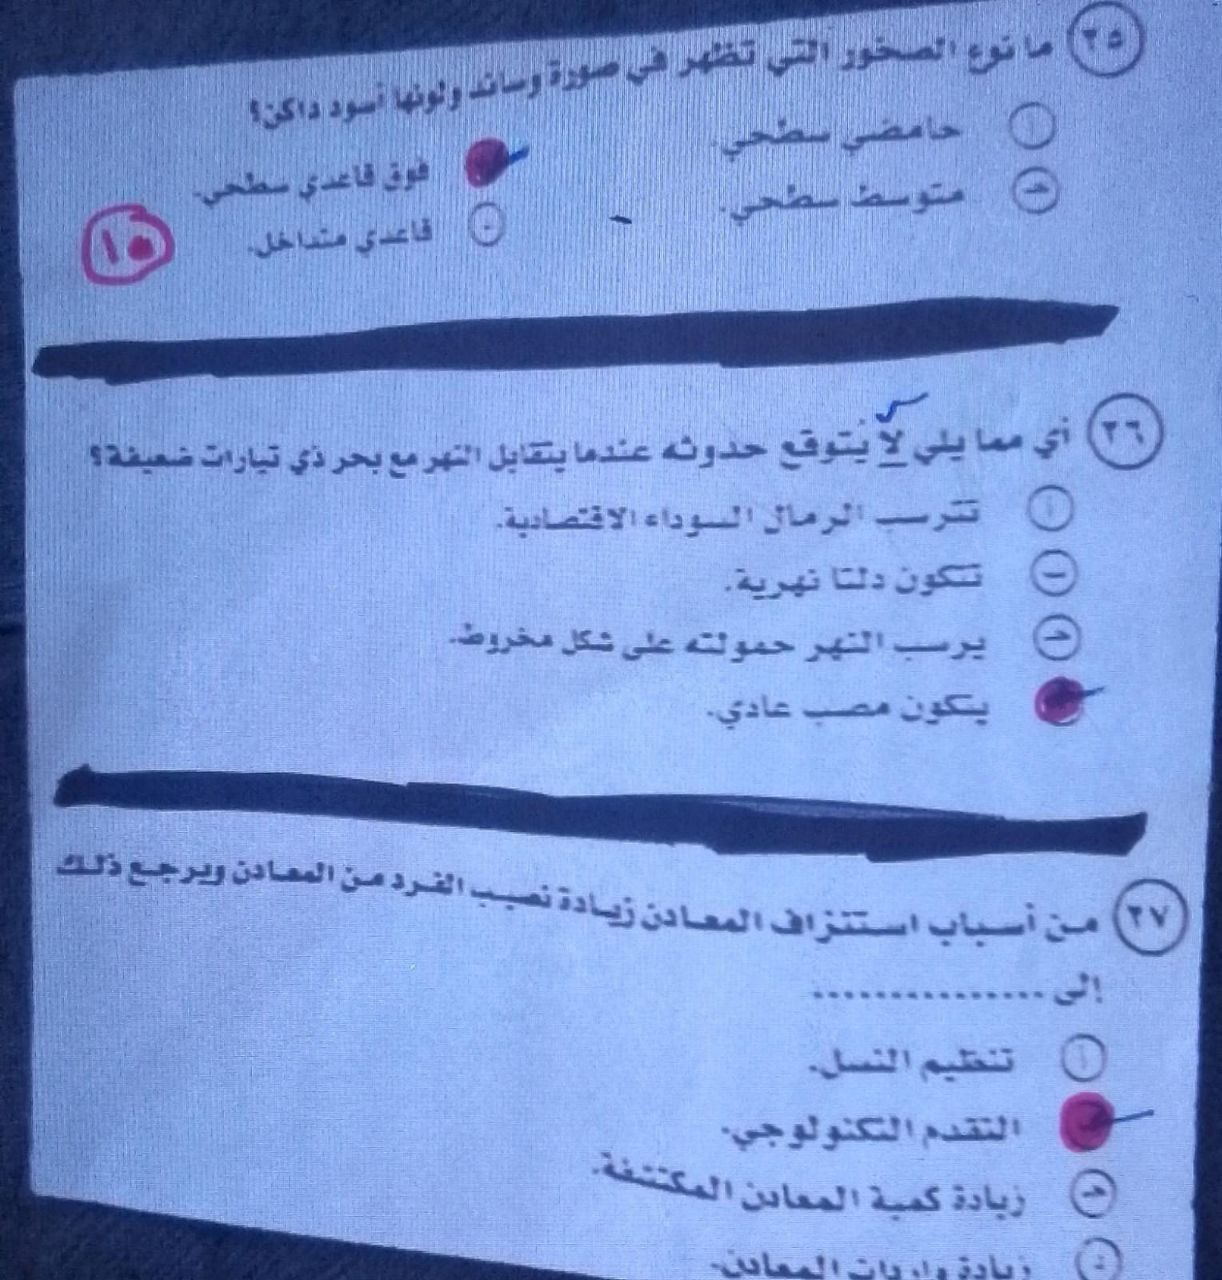 ٢٥ ما نوع الصخور التي تظهر في صورة وسائد ولونها أسود داكن؟
أ حامضي سطحي.
فوق قاعدي سطحي.
جـ متوسط سطحي.
د قاعدي متداخل.
١٥
٢٦ أي مما يلي لا يُتوقع حدوثه عندما يتقابل النهر مع بحر ذي تيارات ضعيفة؟
أ تترسب الرمال السوداء الاقتصادية.
ب تتكون دلتا نهرية.
جـ يرسب النهر حمولته على شكل مخروط.
يتكون مصب عادي.
٢٧ من أسباب استنزاف المعادن زيادة نصيب الفرد من المعادن ويرجع ذلك
إلى ...............
أ تنظيم النسل.
التقدم التكنولوجي.
جـ زيادة كمية المعادن المكتشفة.
د زيادة واردات المعادن.